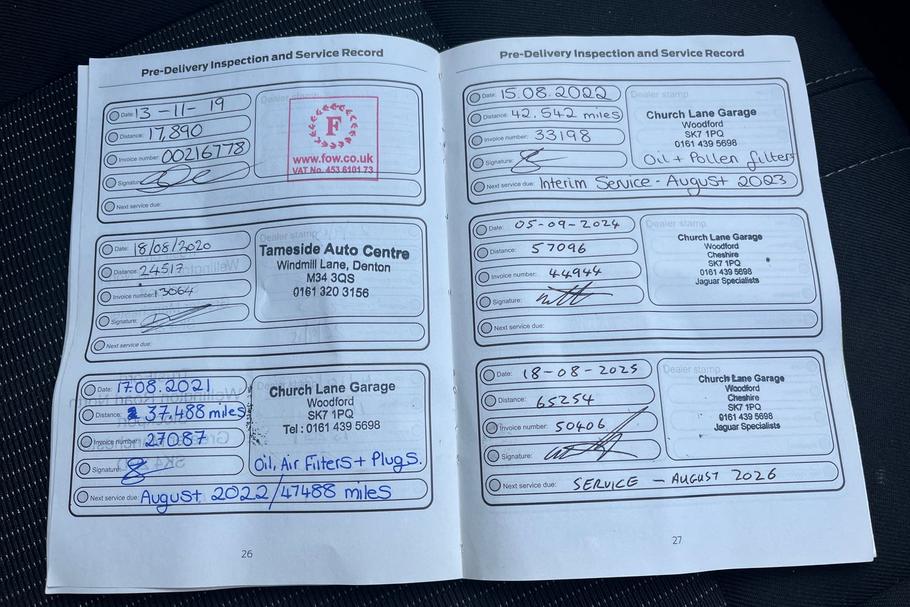 Pre-Delivery Inspection and Service Record
Date: 13-11-19
Distance: 17,890
Invoice number: 00216778
Signature:
Next service due:
Dealer stamp
F
www.fow.co.uk
VAT No. 453 6101 73
Date: 18/08/2020
Distance: 24517
Invoice number: 13064
Signature:
Next service due:
Dealer stamp
Tameside Auto Centre
Windmill Lane, Denton
M34 3QS
0161 320 3156
Date: 17.08.2021
Distance: 37.488 miles
Invoice number: 27087
Signature:
Church Lane Garage
Woodford
SK7 1PQ
Tel : 0161 439 5698
Oil, Air Filters + Plugs.
Next service due: August 2022/47488 miles
26
Pre-Delivery Inspection and Service Record
Date: 15.08.2022
Distance: 42.542 miles
Invoice number: 33198
Signature:
Dealer stamp
Church Lane Garage
Woodford
SK7 1PQ
0161 439 5698
Oil + Pollen filters
Next service due: Interim Service - August 2023
Date: 05-09-2024
Distance: 57096
Invoice number: 44944
Signature:
Next service due:
Dealer stamp
Church Lane Garage
Woodford
Cheshire
SK7 1PQ
0161 439 5698
Jaguar Specialists
Date: 18-08-2025
Distance: 65254
Invoice number: 50406
Signature:
Dealer stamp
Church Lane Garage
Woodford
Cheshire
SK7 1PQ
0161 439 5698
Jaguar Specialists
Next service due: SERVICE - AUGUST 2026
27